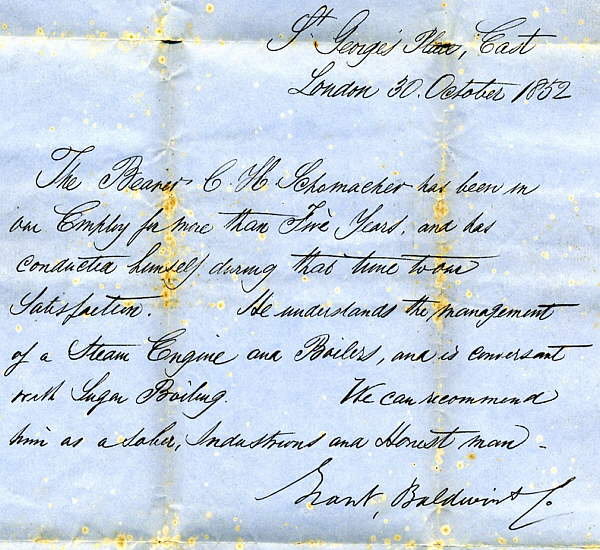 St. George's Place, East
London 30. October 1852
The Bearer C. H. Schomacher has been in
our Employ for more than Five Years, and has
conducted himself during that time to our
Satisfaction. He understands the management
of a Steam Engine and Boilers, and is conversant
with Sugar Boiling. We can recommend
him as a sober, Industrious and Honest man -
Grant, Baldwin & Co.